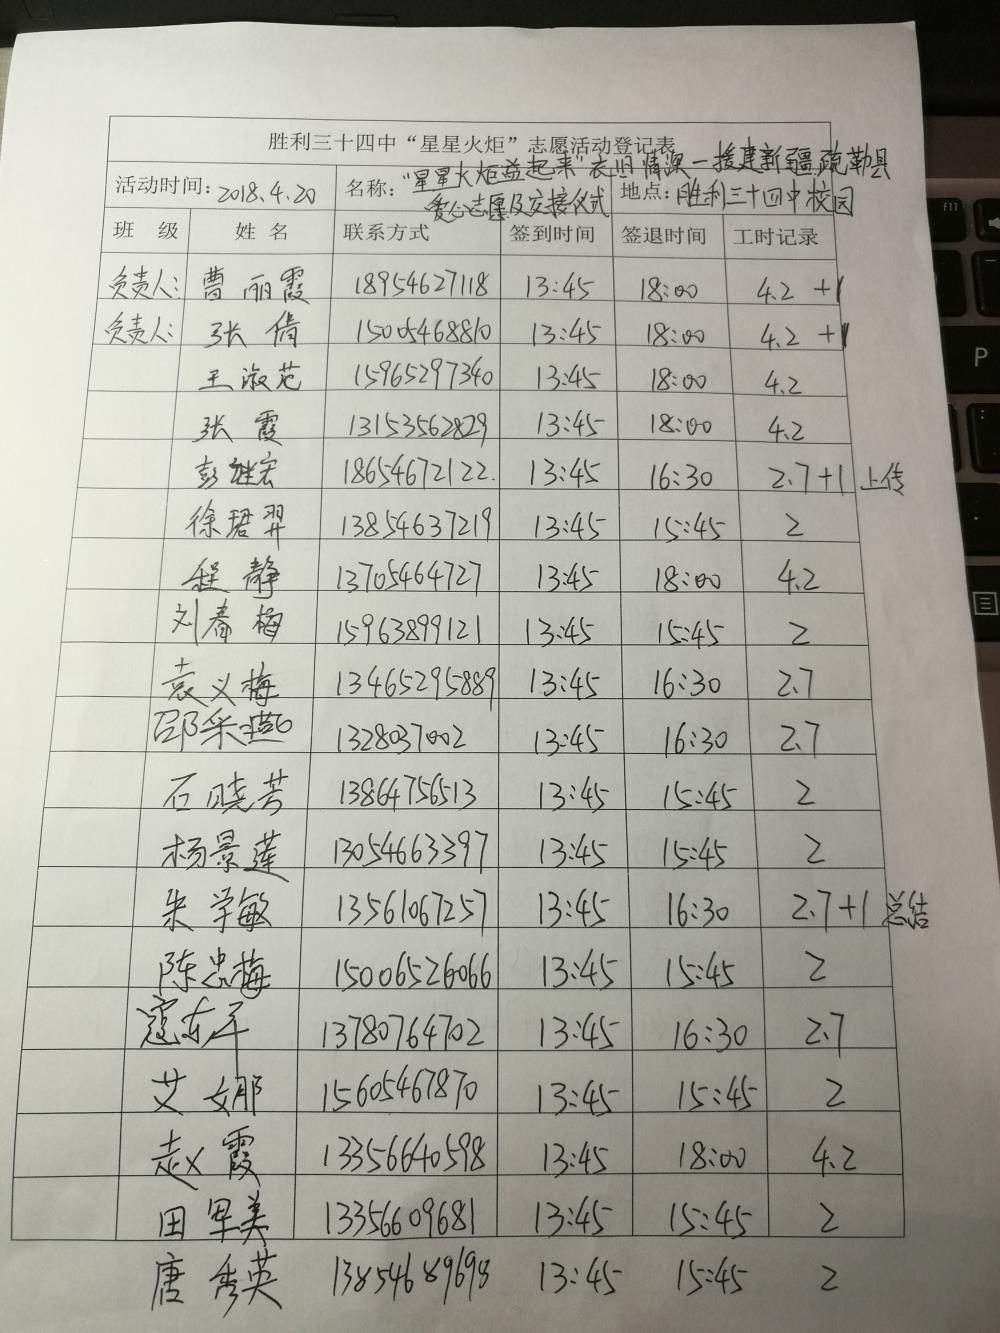 胜利三十四中“星星火炬”志愿活动登记表
活动时间：2018.4.20 名称：“星星火炬益起来”衣旧情深—援建新疆疏勒县爱心志愿及交接仪式 地点：胜利三十四中校园
班 级 姓 名 联系方式 签到时间 签退时间 工时记录
负责人： 曹丽霞 18954627118 13:45 18:00 4.2 +1
负责人： 张倩 15005468810 13:45 18:00 4.2 +1
王淑范 15965297340 13:45 18:00 4.2
张霞 13153562829 13:45 18:00 4.2
彭继宏 18654672122. 13:45 16:30 2.7+1 上传
徐珺羿 13854637219 13:45 15:45 2
程静 13705464727 13:45 18:00 4.2
刘春梅 15963899121 13:45 15:45 2
袁义梅 13465295889 13:45 16:30 2.7
邵采燕 1328037002 13:45 16:30 2.7
石晓芳 13864756513 13:45 15:45 2
杨景莲 13054663397 13:45 15:45 2
朱学敏 13561067257 13:45 16:30 2.7+1 总结
陈忠梅 15006526066 13:45 15:45 2
寇东军 13780764702 13:45 16:30 2.7
艾娜 15605467870 13:45 15:45 2
赵霞 13356640598 13:45 18:00 4.2
田早美 13356609681 13:45 15:45 2
唐秀英 13854689698 13:45 15:45 2
f11
P